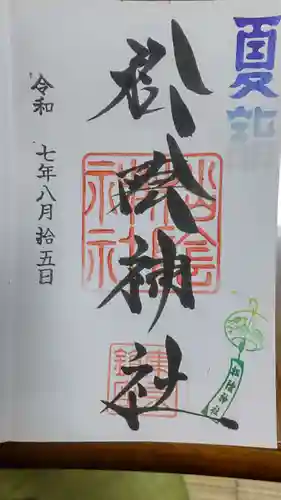 夏詣
松陰神社
松陰神社
松陰神社
令和 七年八月拾五日